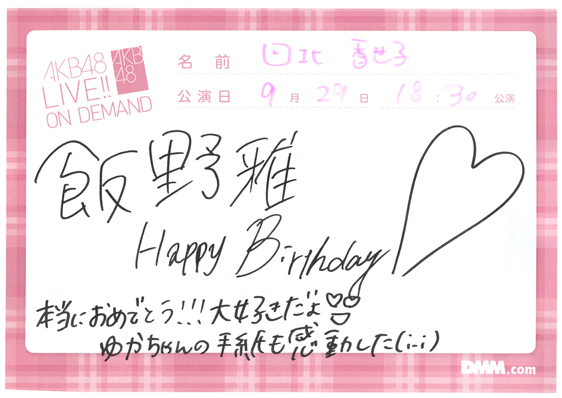 AKB48
LIVE!!
ON DEMAND
AKB
48
名前 田北香世子
公演日 9月29日 18:30公演
飯野雅
Happy Birthday
本当におめでとう!!!大好きだよ
ゆかちゃんの手紙も感動した(;_;)
DMM.com